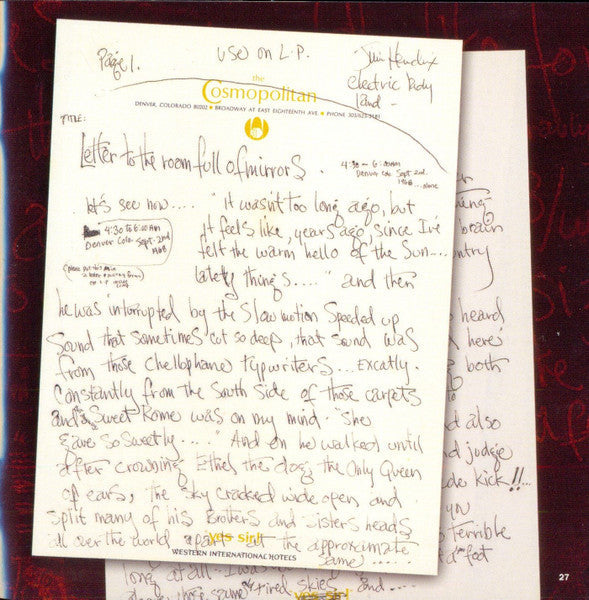 Page 1.
USE ON L.P.
Jimi Hendrix
Electric Lady
land -
the
Cosmopolitan
DENVER, COLORADO 80202 • BROADWAY AT EAST EIGHTEENTH AVE. • PHONE 303/623-2181
TITLE:
Letter to the room full of mirrors.
4:30 - 6:00 AM
Denver Colo. Sept. 2nd
1968
let's see now.... "It wasn't too long ago, but
4:30 to 6:00 AM
Denver Colo. Sept. 2nd
1968
it feels like, years ago, since I've
felt the warm hello of the Sun...
lately things...." and then
he was interrupted by the slow motion speeded up
Sound that sometimes cut so deep, that sound was
from those chellophane typwriters... Excatly.
Constantly from the South Side of those carpets
and Sweet Rome was on my mind. "She
gave so sweetly....." And on he walked until
after crowning Ethel the dog the Only Queen
of ears, the sky cracked wide open and
split many of his Brothers and sisters heads
all over the world apart at the approximate
same.....
yes sir!
WESTERN INTERNATIONAL HOTELS
brain
heard
here
both
d also
nd judge
de kick!!...
you
terrible
long at all. I was
those same tired skies and....
yes sir!
27